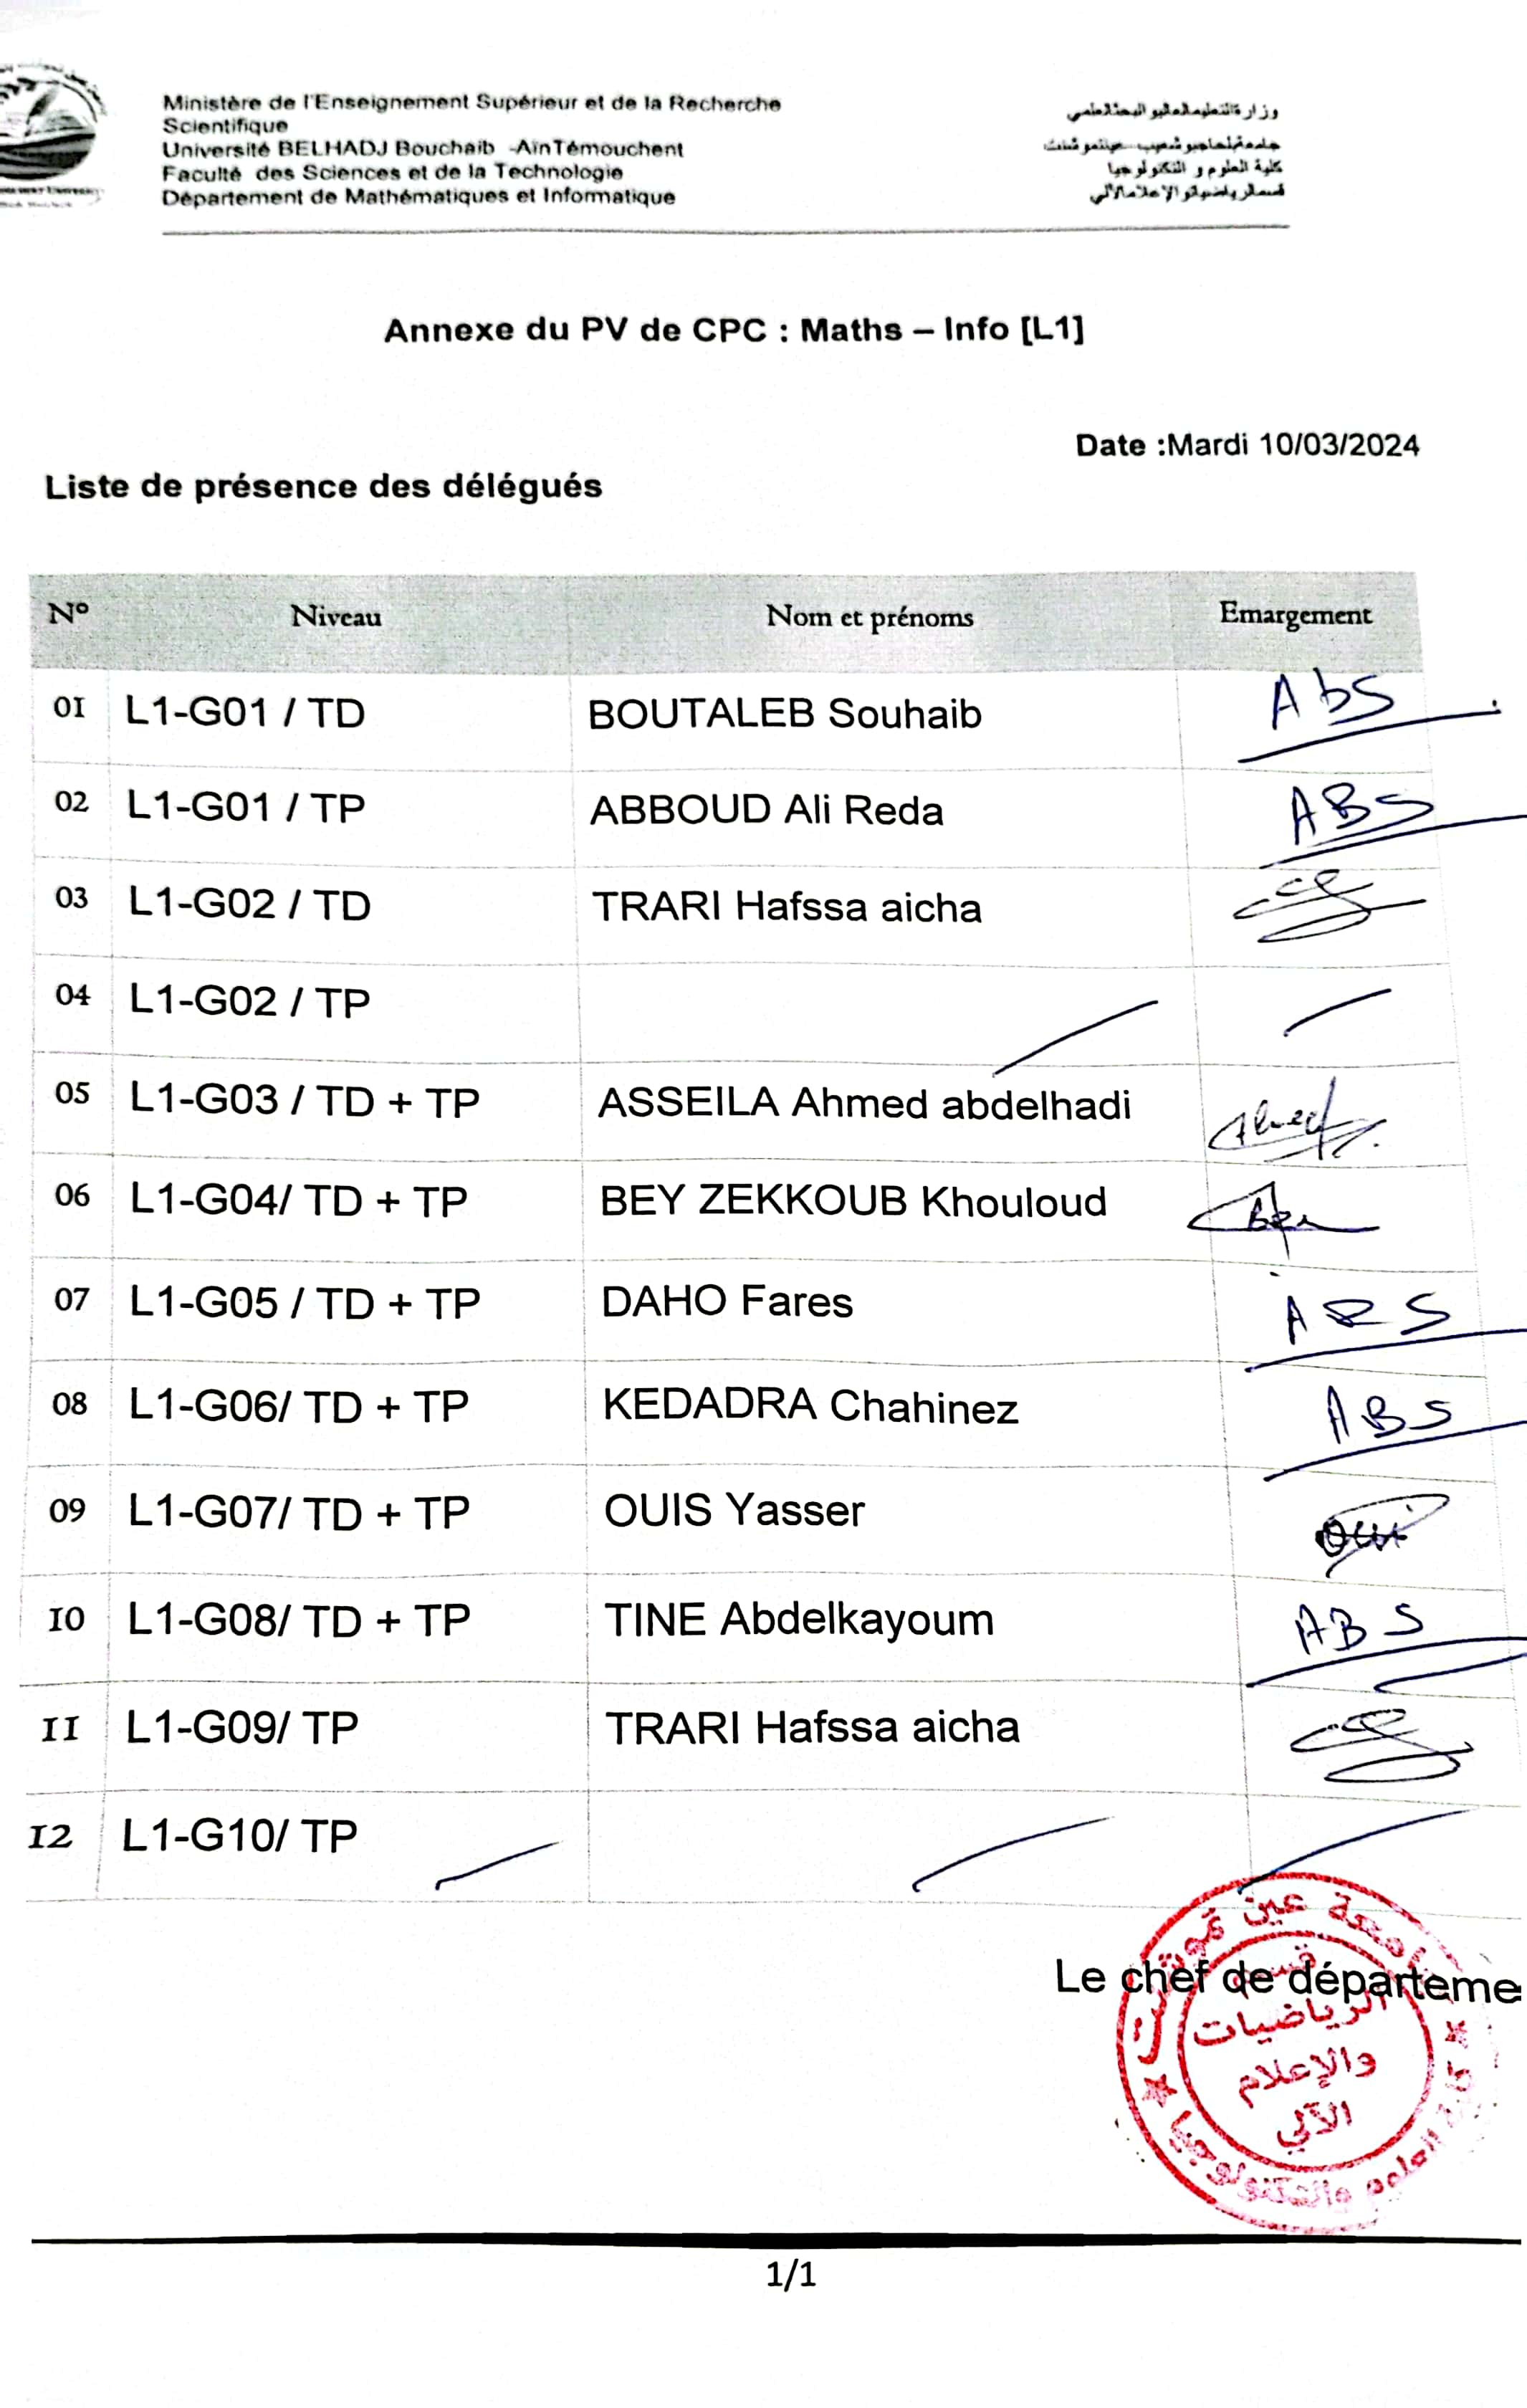 Ministère de l'Enseignement Supérieur et de la Recherche
Scientifique
Université BELHADJ Bouchaib -AïnTémouchent
Faculté des Sciences et de la Technologie
Département de Mathématiques et Informatique
وزارةالتعليمالعاليو البحثالعلمي
جامعةبلحاجبوشعيب -عينتموشنت
كلية العلوم و التكنولوجيا
قسمالرياضياتو الإعلامالآلي
Annexe du PV de CPC : Maths – Info [L1]
Date :Mardi 10/03/2024
Liste de présence des délégués
N° Niveau Nom et prénoms Emargement
01 L1-G01 / TD BOUTALEB Souhaib AbS
02 L1-G01 / TP ABBOUD Ali Reda ABS
03 L1-G02 / TD TRARI Hafssa aicha
04 L1-G02 / TP
05 L1-G03 / TD + TP ASSEILA Ahmed abdelhadi
06 L1-G04/ TD + TP BEY ZEKKOUB Khouloud
07 L1-G05 / TD + TP DAHO Fares ABS
08 L1-G06/ TD + TP KEDADRA Chahinez ABS
09 L1-G07/ TD + TP OUIS Yasser
10 L1-G08/ TD + TP TINE Abdelkayoum ABS
11 L1-G09/ TP TRARI Hafssa aicha
12 L1-G10/ TP
Le chef de départeme
قسم
الرياضيات
والإعلام
الآلي
1/1